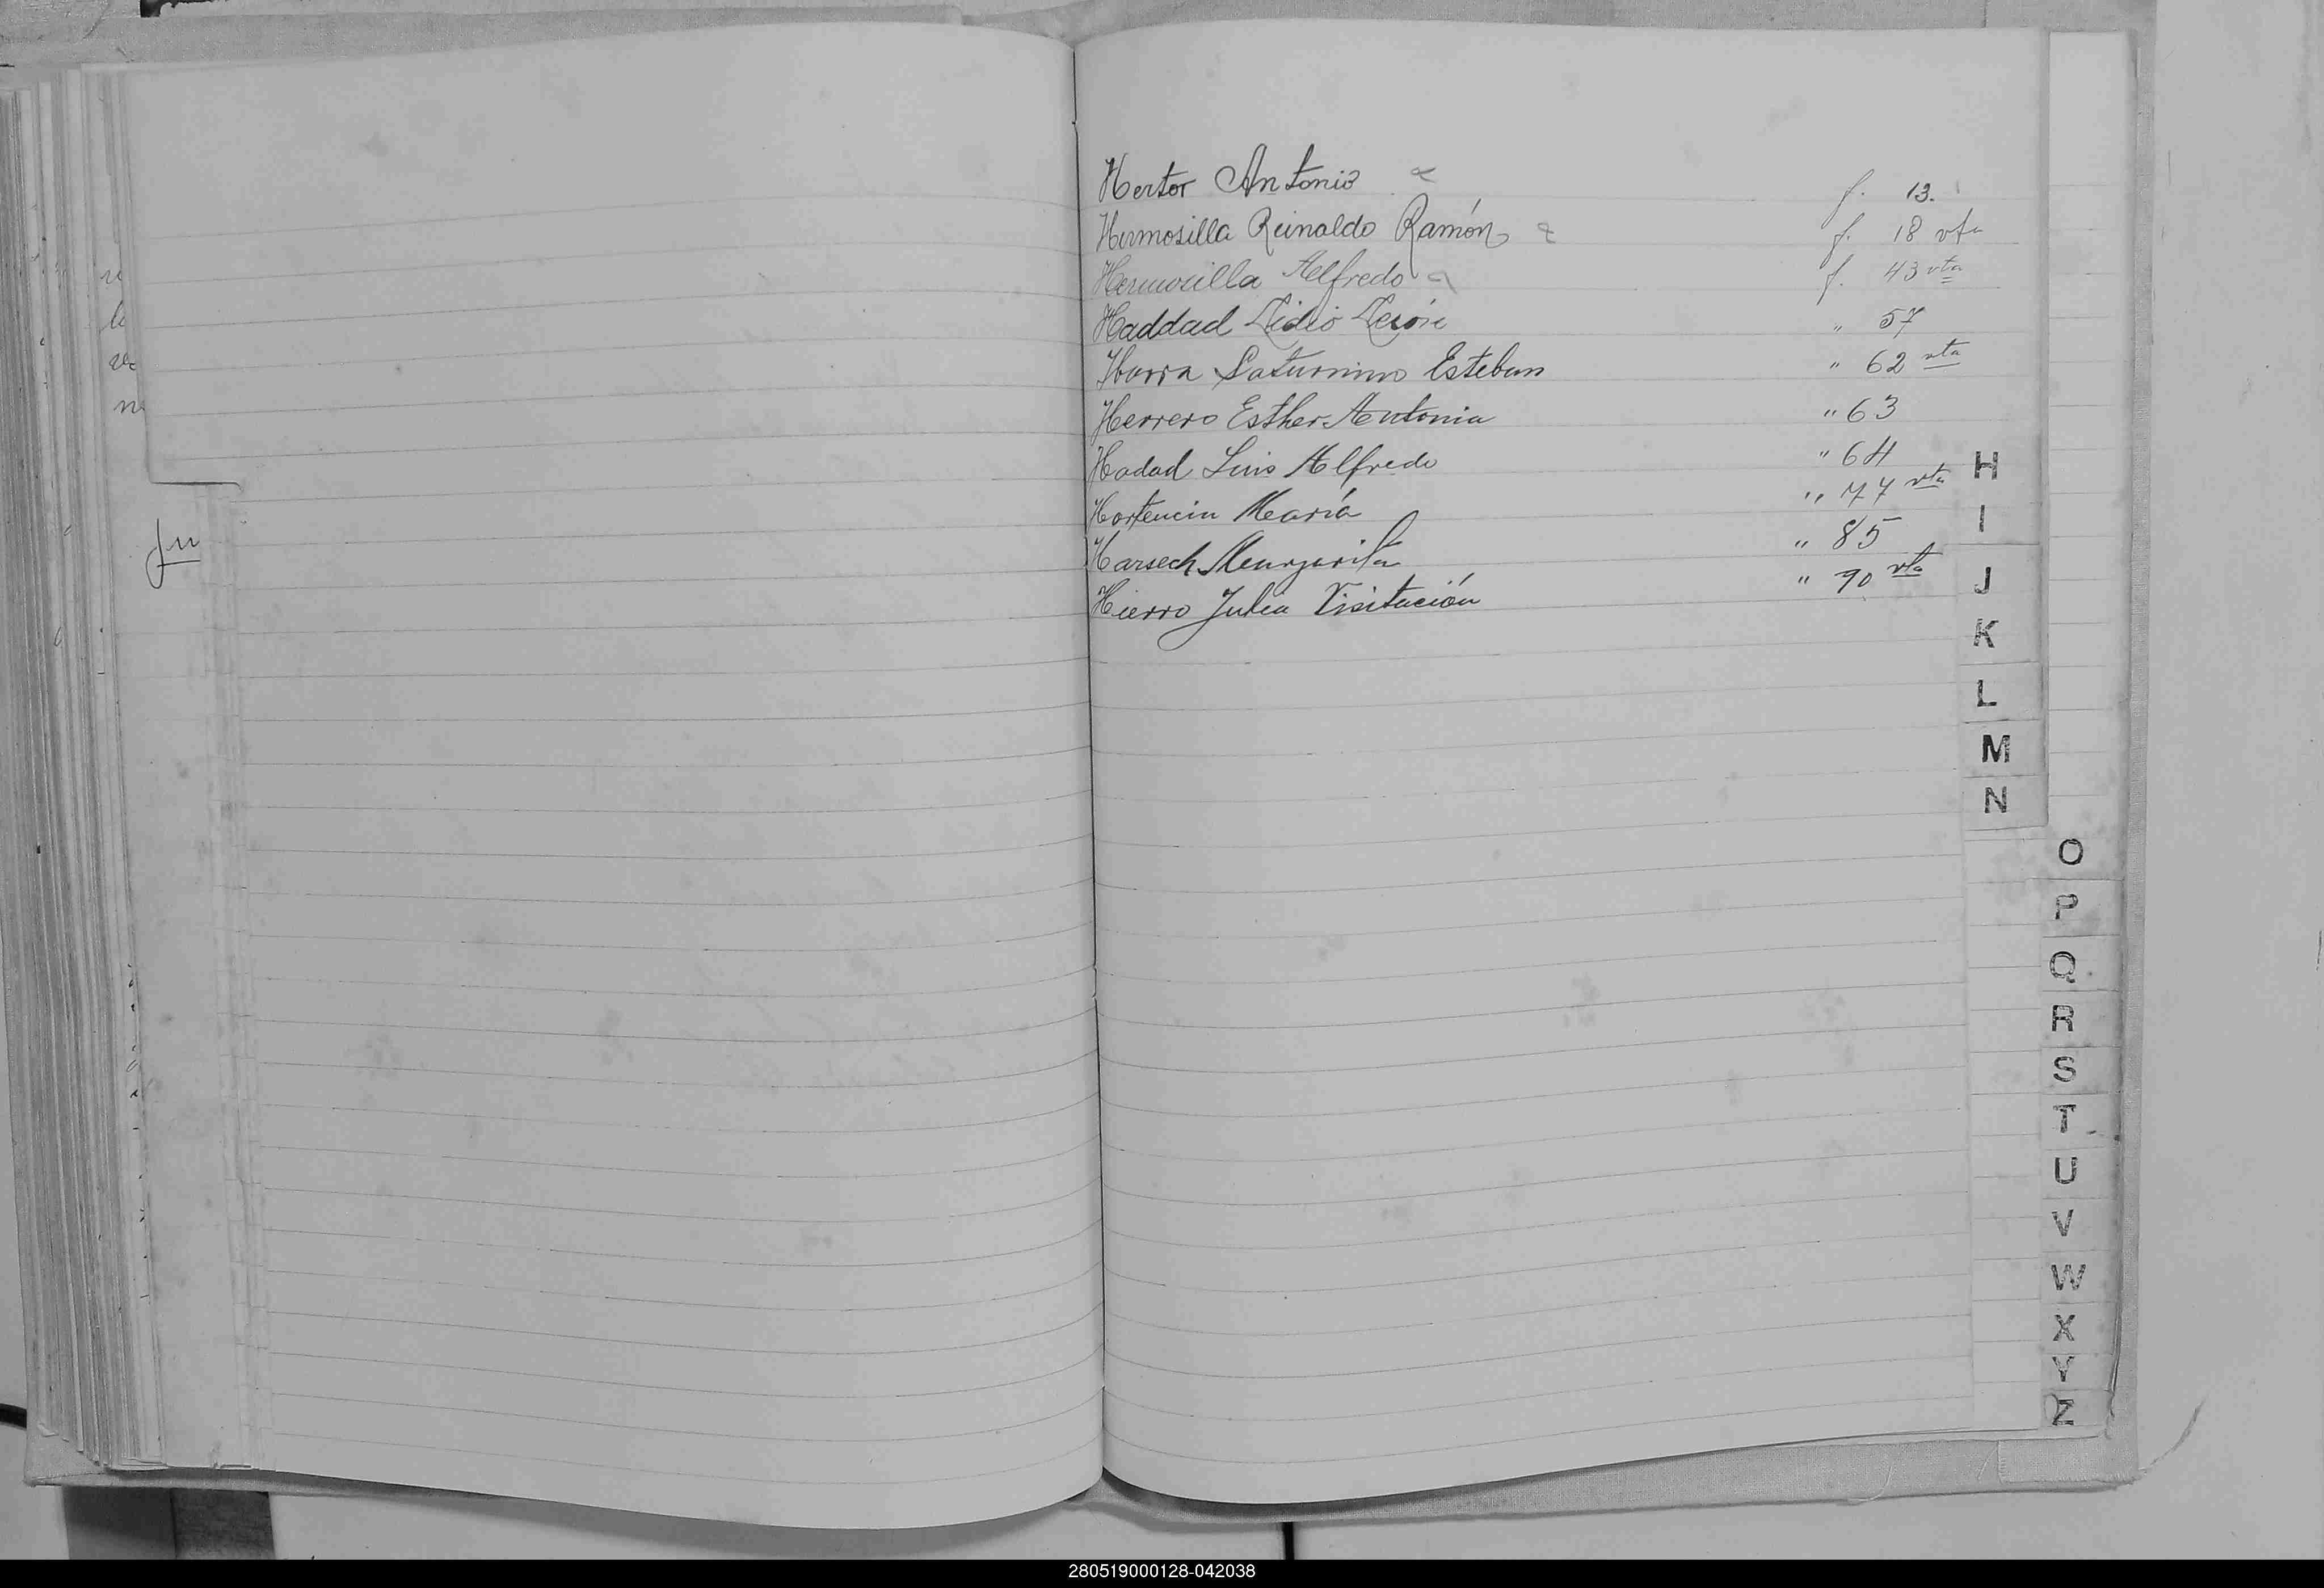 Hertor Antonio f. 13.
Hermosilla Reinaldo Ramón f. 18 vta
Hermosilla Alfredo f. 43 vta
Haddad Lidio " 57
Ibarra Saturnino Esteban " 62 vta
Herrero Esther Antonia " 63
Hadad Luis Alfredo " 64
Hortencia María " 77 vta
Harsech Margarita " 85
Hierro Julia Visitación " 90 vta
H
I
J
K
L
M
N
O
P
Q
R
S
T
U
V
W
X
Y
Z
280519000128-042038